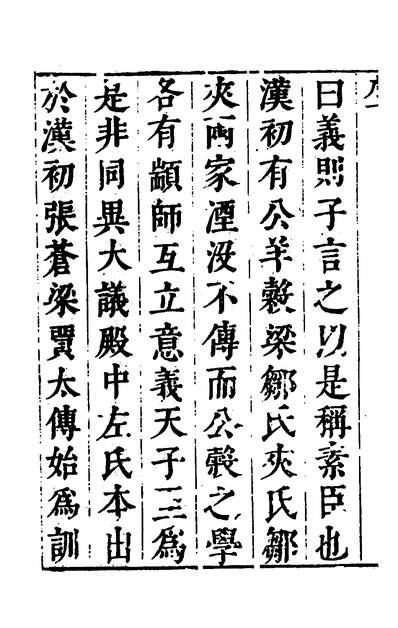 曰義則子言之以是稱素臣也
漢初有公羊穀梁鄒氏夾氏鄒
夾兩家湮没不傳而公穀之學
各有顓師互立意義天子爲
是非同異大議殿中左氏本出
於漢初張蒼梁賈太傅始爲訓